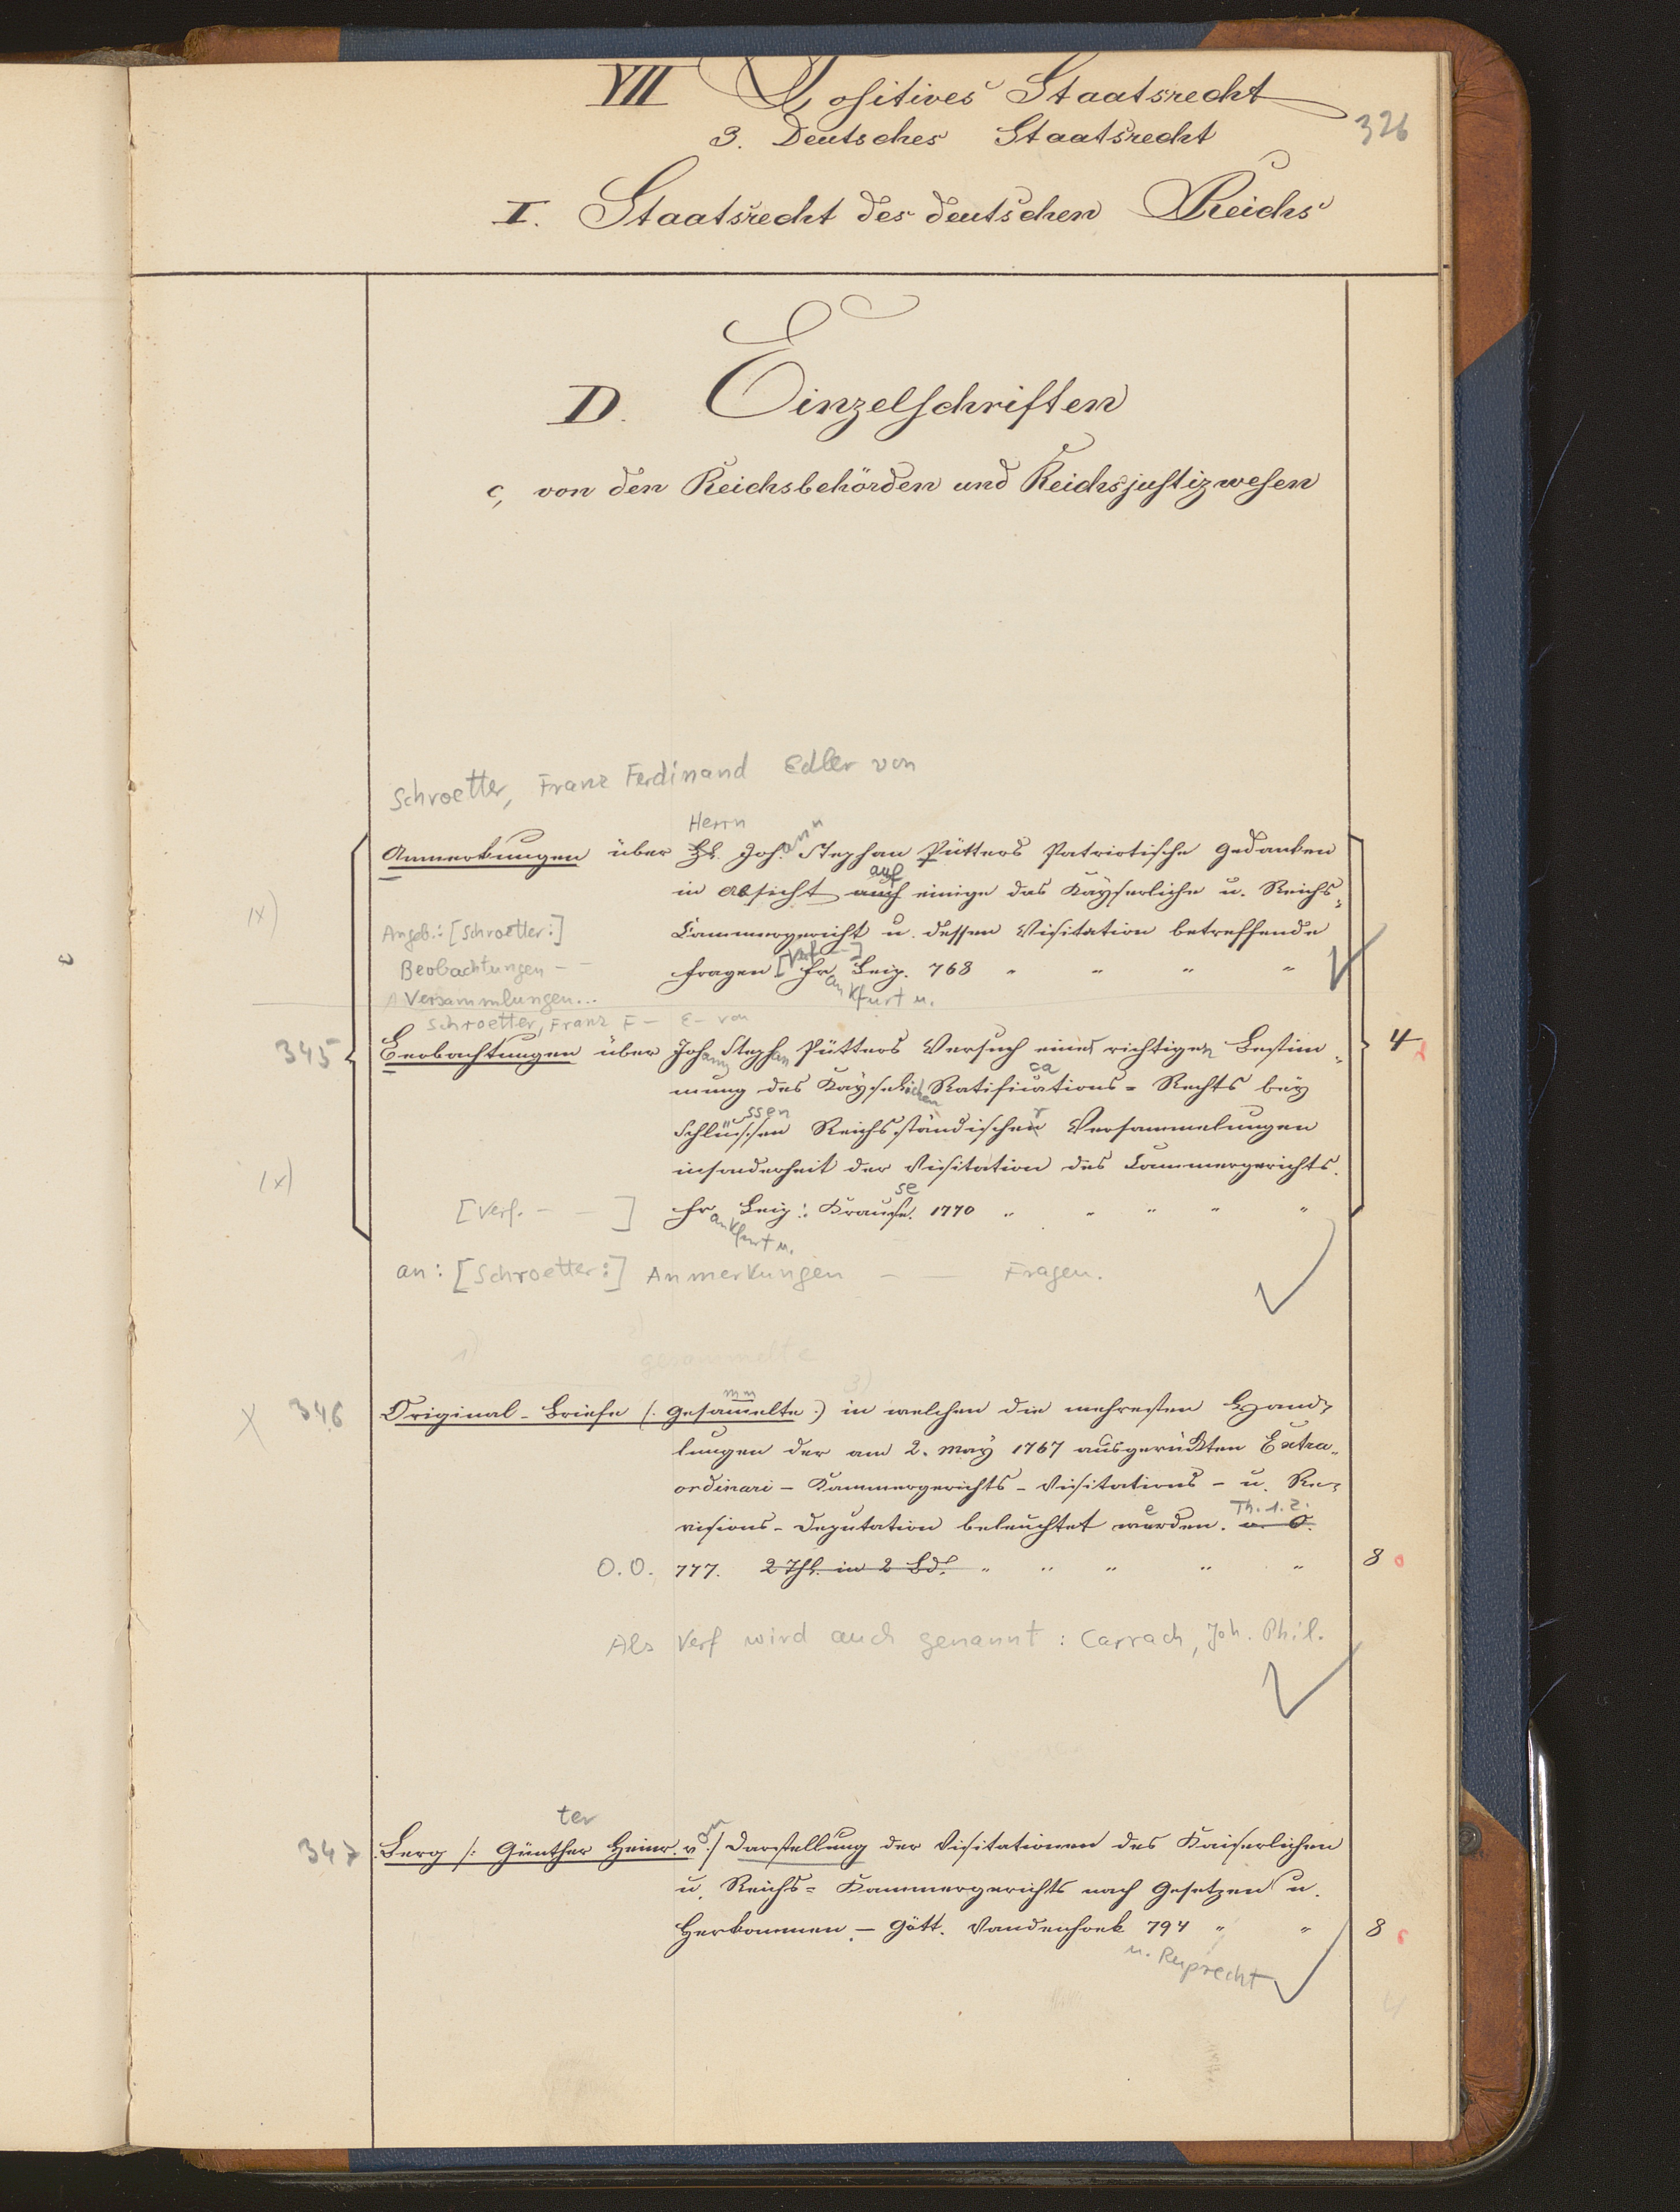 VII Positives Staatsrecht
326
3. Deutsches Staatsrecht
I. Staatsrecht des deutschen Reichs
D. Einzelschriften
c, von den Reichsbehörden und Reichsjustizwesen
Schroetter, Franz Ferdinand Edler von
Herrn
Anmerkungen über H. Johann Stephan Pütters Patriotische Gedanken
auf
in Absicht auch einige das Kayserliche u. Reichs-
1x)
Angeb.: [Schroetter:]
Cammergericht u. dessen Visitation betreffende
Beobachtungen - -
Fragen [Verf - -] Frankfurt u. Leipz. 768 " " " "
Versammlungen...
Schroetter, Franz F- E- von
345
Beobachtungen über Johann Stephan Pütters Versuch einer richtigen Bestim-
4
mung des Kayserlichen Ratifications-Rechts bey
Schlüssen Reichsständischer Versammelungen
insonderheit der Visitation des Cammergerichts.
1x)
[Verf. - - ] Frankfurt u. Leipz: Krause. 1770 " " " " "
an: [Schroetter:] Anmerkungen - - Fragen.
1)
gesammelte
3)
x 346
Original-Briefe (: gesammelte :) in welchen die mehresten Hand-
lungen der am 2. May 1767 ausgerückten Extra-
ordinari-Kammergerichts-Visitations- u. Re-
visions-Deputation beleuchtet werden. Th. 1. 2. o. O.
O.O. 777. 2 Thl. in 2 Bd. " " " " "
8
Als Verf wird auch genannt: Carrach, Joh. Phil.
347
Berg /: Günther Heinr. von :/ Darstellung der Visitationen des Kaiserlichen
ter
u. Reichs-Kammergerichts nach Gesetzen u.
Herkommen. - Gött. Vandenhoek 794 " "
8
u. Ruprecht